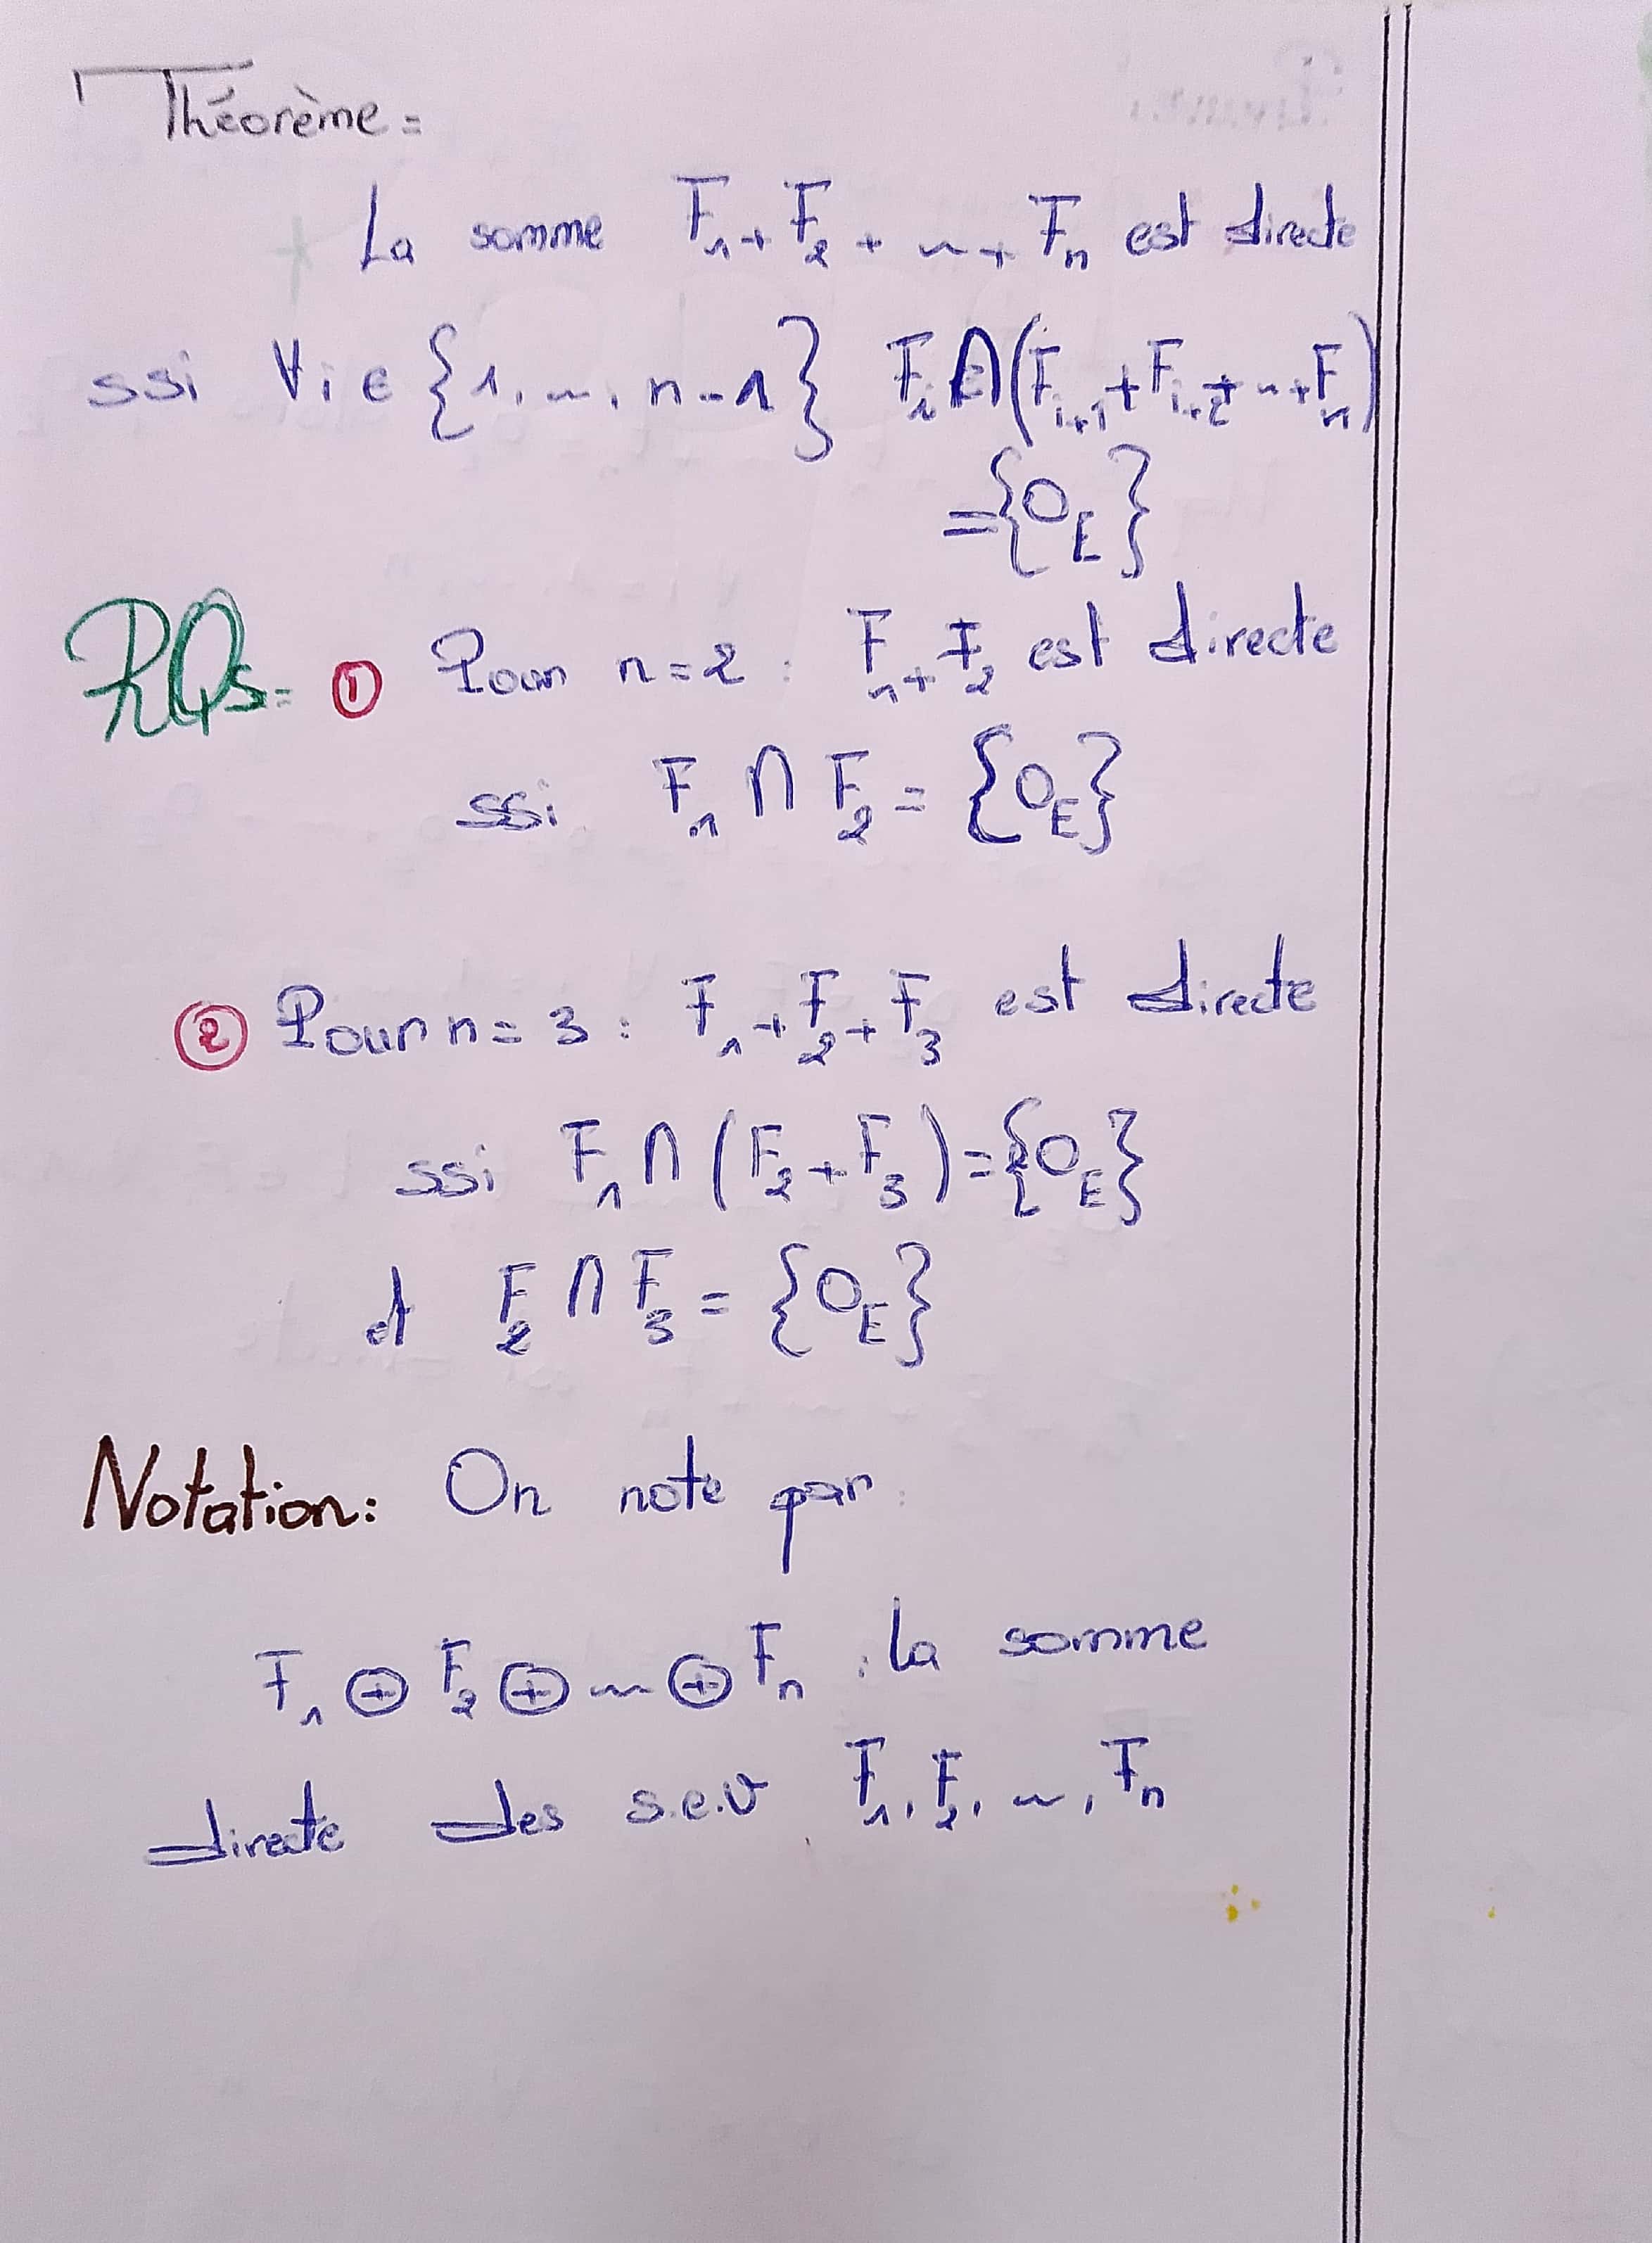 Théorème =
La somme F₁ + F₂ + ... + Fₙ est directe
ssi ∀ i ∈ {1, ..., n-1} Fᵢ ∩ (Fᵢ₊₁ + Fᵢ₊₂ + ... + Fₙ)
= {0_E}
RQs = ① Pour n = 2 : F₁ + F₂ est directe
ssi F₁ ∩ F₂ = {0_E}
② Pour n = 3 : F₁ + F₂ + F₃ est directe
ssi F₁ ∩ (F₂ + F₃) = {0_E}
et F₂ ∩ F₃ = {0_E}
Notation : On note par :
F₁ ⊕ F₂ ⊕ ... ⊕ Fₙ : la somme
directe des s.e.v F₁, F₂, ..., Fₙ